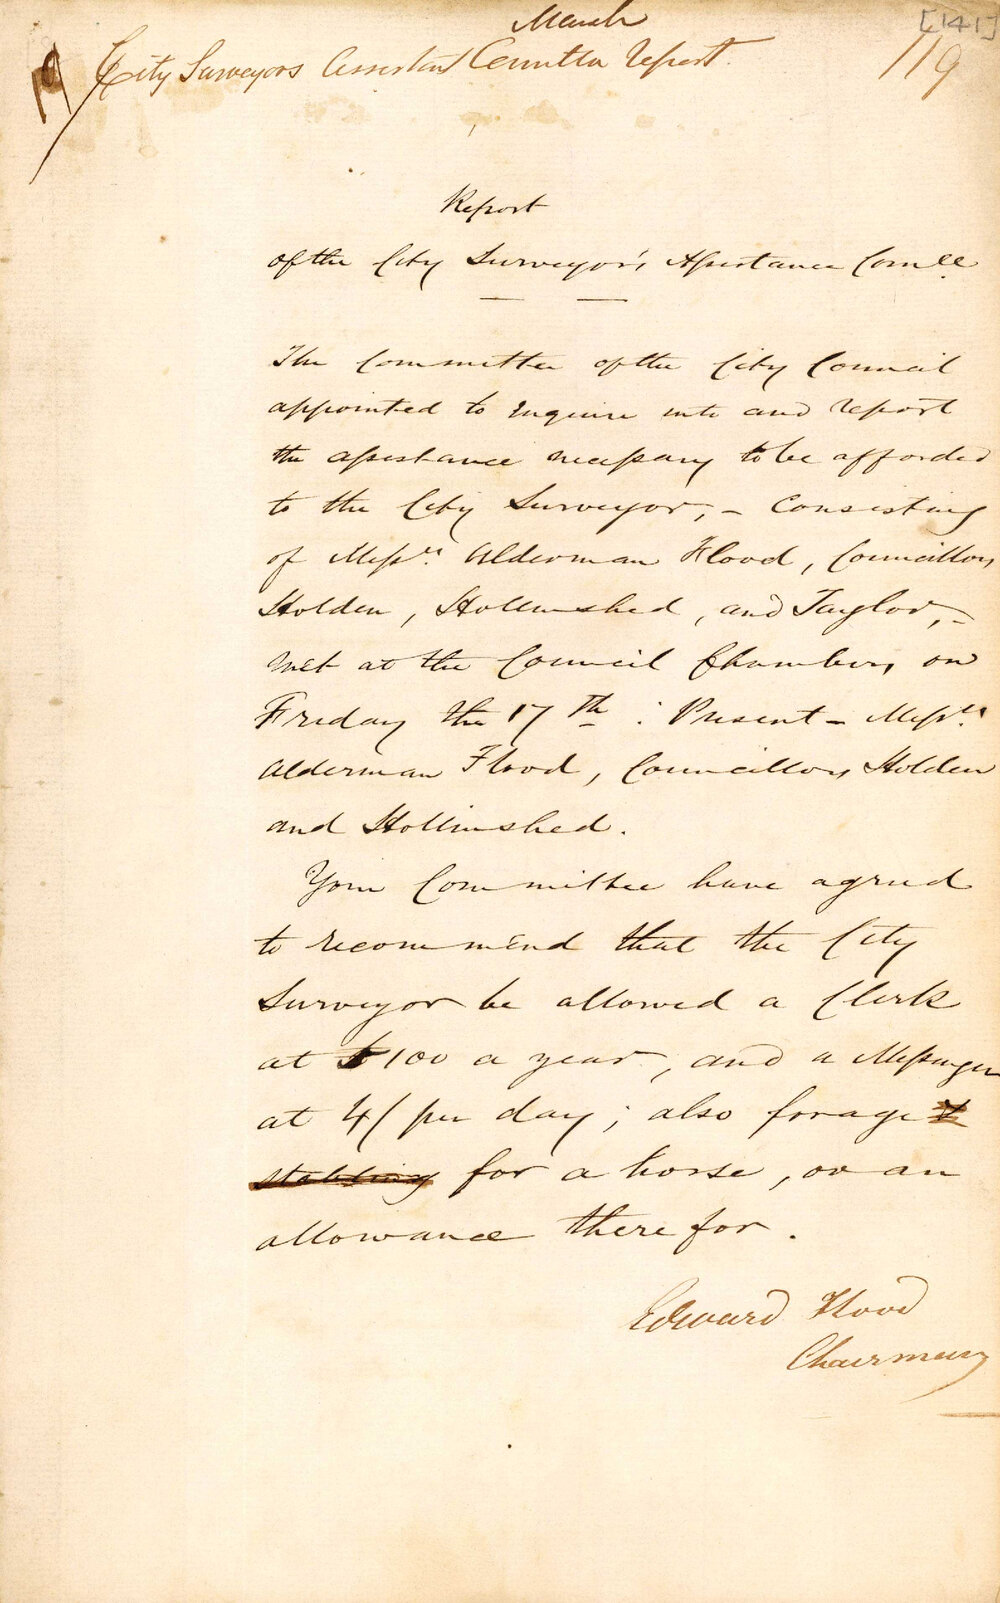 March
[141]
119
City Surveyors Assistant Committee Report.
Report
of the City Surveyor's Assistance Comee
The Committee of the City Council
appointed to enquire into and report
the assistance necessary to be afforded
to the City Surveyor, - consisting
of Messrs. Alderman Flood, Councillors
Holden, Hollinshed, and Taylor, -
met at the Council Chambers, on
Friday the 17th : Present - Messrs.
Alderman Flood, Councillors Holden
and Hollinshed.
Your Committee have agreed
to recommend that the City
Surveyor be allowed a Clerk
at £100 a year, and a Messenger
at 4/ per day; also forage &
stabling for a horse, or an
allowance therefor.
Edward Flood
Chairman